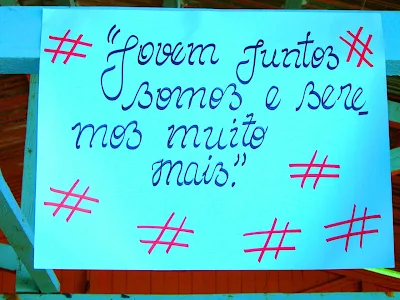 # "Jovem Juntos #
somos e sere_
mos muito
mais." #
#
# # #